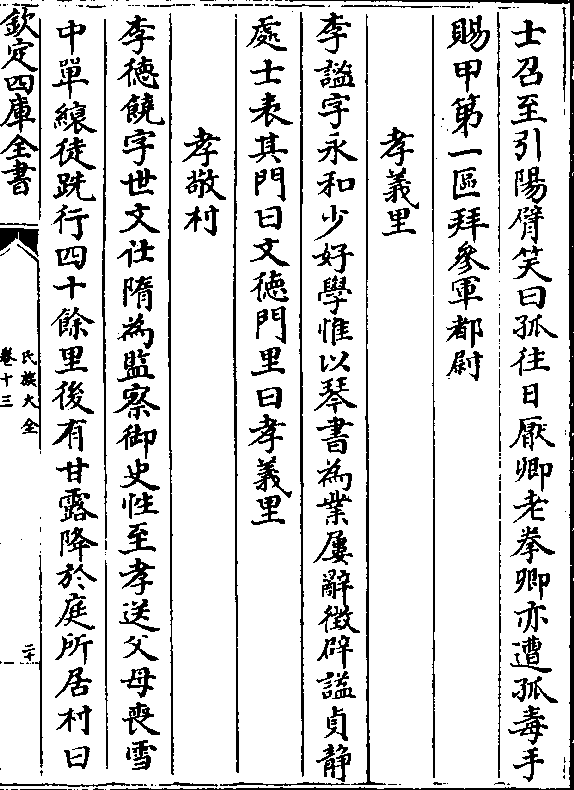 士召至引陽臂笑曰孤往日厭卿老拳卿亦遭孤毒手
賜甲第一區拜參軍都尉
孝義里
李謐字永和少好學惟以琴書為業屢辭徵辟謚貞静
處士表其門曰文徳門里曰孝義里
孝敬村
李徳饒字世文仕隋為監察御史性至孝送父母喪雪
中單縗徒跣行四十餘里後有甘露降於庭所居村曰
欽定四庫全書
氏族大全
卷十三
二十